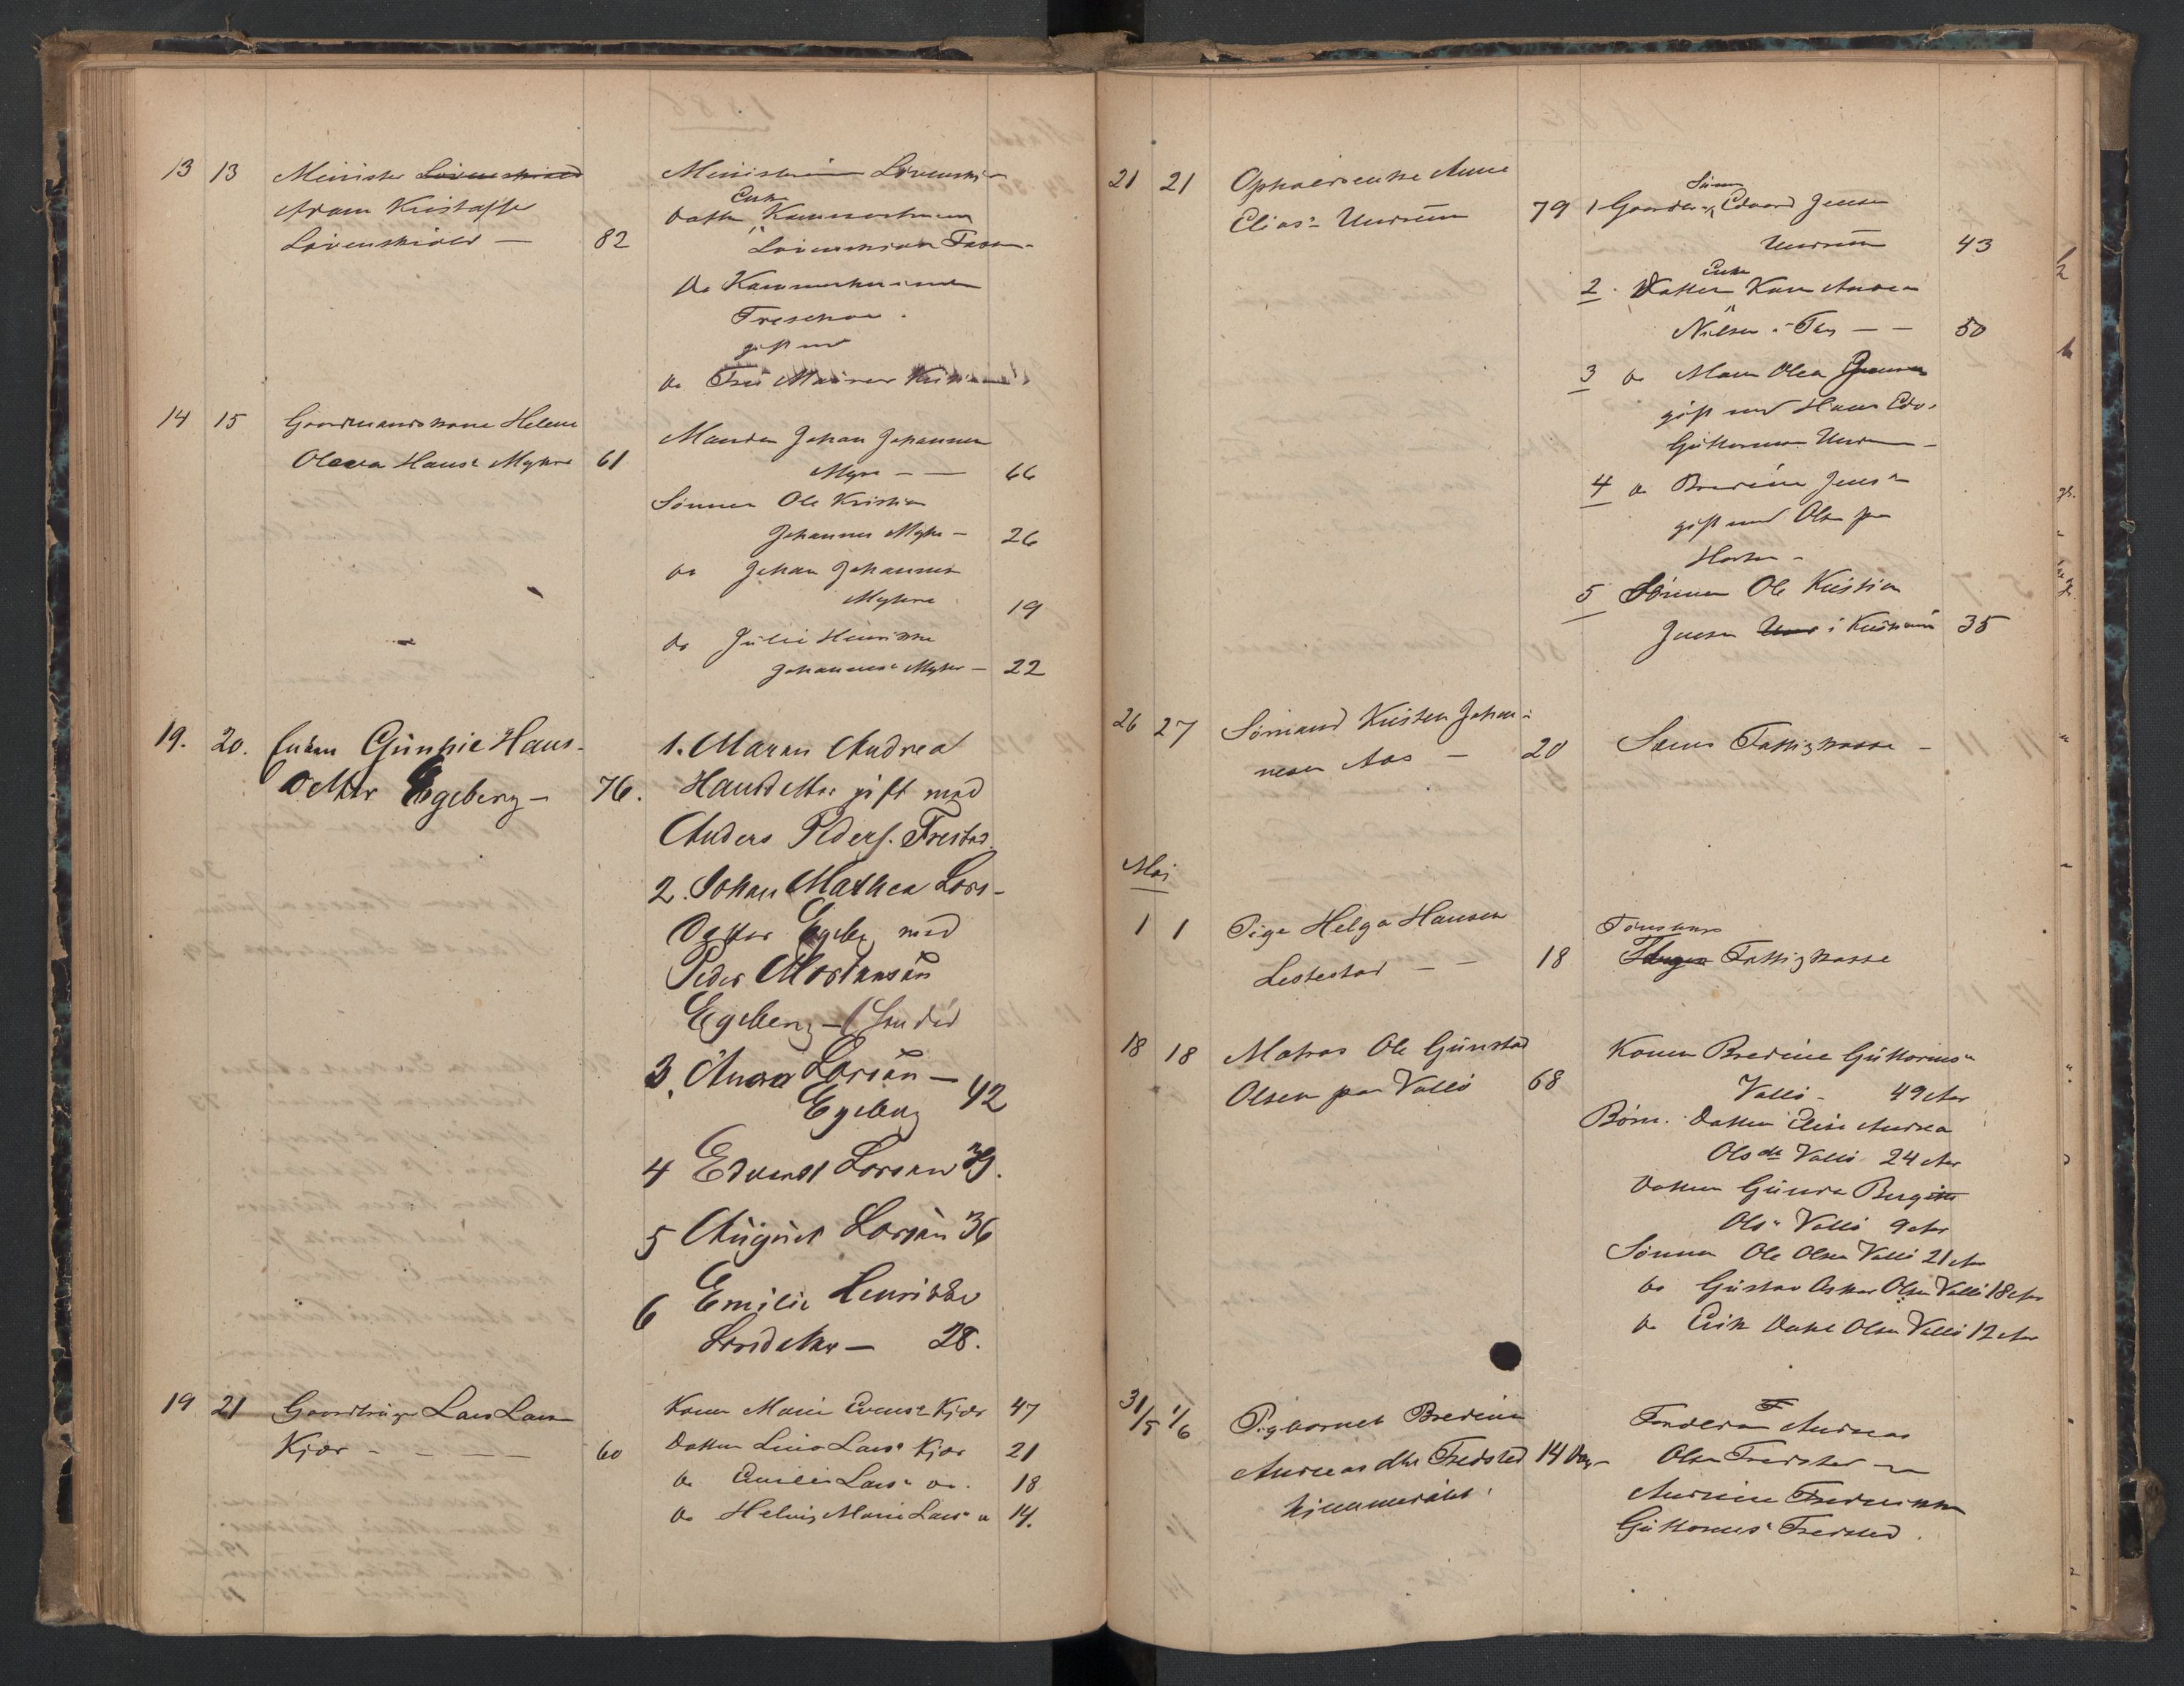 13 13 Minister Løvenskiold
Adam Kristoffe
Løvenskiold — 82
Ministerinne Løvensk
Enke
Datter Kammerherre
Løvenskiold
do Kammerherreinde
Treschow
gift med
do
14 15 Gaardmandskone Helene
Olava Hans Myhre 61
Manden Johan Johannesen
Myre — — 66
Sønnen Ole Kristian
Johannes Myhre — 26
do Johan Johannes
Myhre 19
do Julie Henrikke
Johannes Myhre — 22
19. 20. Enken Gunhie Hans-
datter Egeberg — 76.
1. Maren Andrea
Hansdatter gift med
Anders Peders. Trestad
2. Johan Mathea Lars-
Datter Egebg med
Peder Mortensen
Egeberg —
3, Anna Larsen —
Egeberg 42
4 Edvardt Larsen 39.
5 August Larsen 36
6 Emilie Henrikke
Larsdatter — 28.
19 21 Gaardbruger Lars Larsen
Kjær - - — — 60
Konen Marie Evens Kjær 47
Datter Lina Lars Kjær 21
do Emilie Lars do. 18
do Helvig Marie Lars " 14.
21 21 Opholdsenke Anne
Elias Undrum 79
Sønn
1 Gaardbr. Edvard Jensen
Undrum 43
Enke
2. Datter Karen Andrea
Nielsen i Tbg — — 50
3 do Maren Olea
gift med Hans Edv.
Guttormsen Undrum —
4 do Bredine Jens
gift med Olsen paa
Horten —
5 Sønnen Ole Kristian
Jensen i Kristiania 35
26 27 Sømand Kristen Johan-
nesen Aas — 20
Sems Fattigkasse —
Mai
1 1 Pige Helga Hansen
Lestestad — — 18
Tønsbergs
Fattigkasse
18 18 Matros Ole Gunstad
Olsen paa Vallø 68
Konen Bredine Guttorms
Vallø - 49 Aar
Børn. Datter Elise Andrea
Olsdtr Vallø 24 Aar
Datter Gunda Bergitte
Ols Vallø 9 Aar
Sønnen Ole Olsen Vallø 21 Aar
do Gustav Oskar Olsen Vallø 18 Aar
do Erik Dahl Olsen Vallø 12 Aar
31/5 1/6 Pigebarnet Bredine
Andreasdtr Fredsted 14 Dag
hjemmedøbt
Forældre Andreas
Olsen Fredsted
Andrine Fredrikke
Guttorms Fredsted.